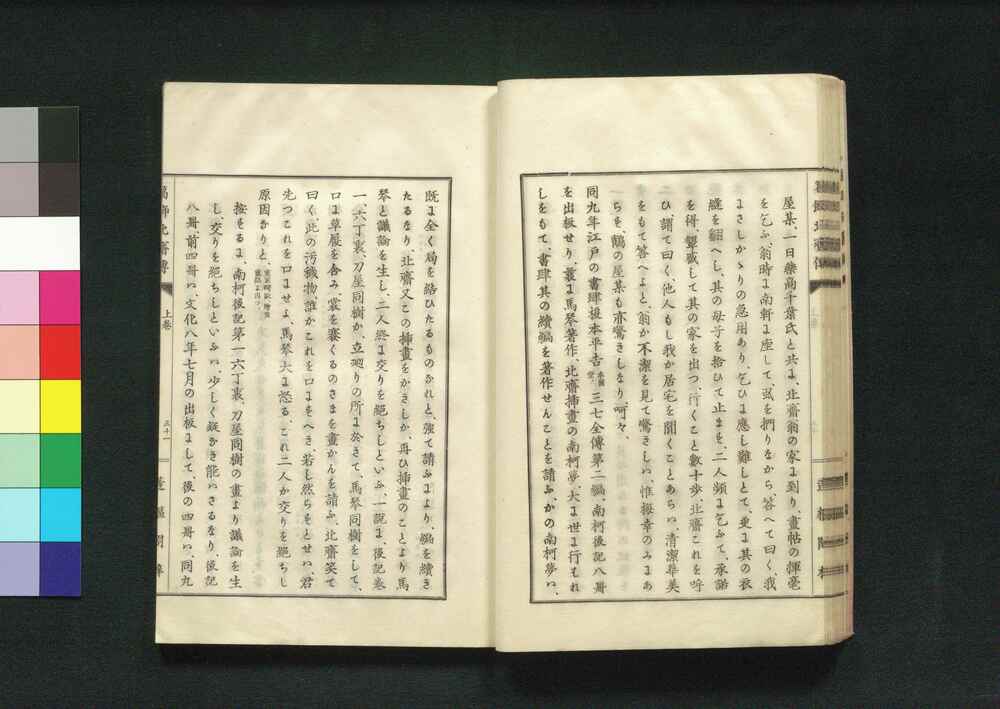 屋某、一日藥高千葉氏と共よ、北齋翁の家よ到り、畫帖の揮毫
を乞ふ、翁時よ南軒よ座して、虱を捫りなから答へて曰く、我
よさしかゝりの急用あり、乞ひよ應し難しとて、更よ其の衣
縫を翻へし、其の母子を拾ひて止まを、二人頻よ乞ふて、承諾
を得、顰蹙して其の家を出つ、行くこと數十歩、北齋これを呼
ひ、謂て曰く、他人もし我か居宅を聞くことあらハ、清潔华美
をもて答へよと、翁か不潔を見て驚きしハ、惟梅幸のみよあ
らを、鶴の屋某も亦驚きしなり、呵々、
同九年江戸の書肆榎本平吉三七全傳第二編、南柯後記八冊
を出板せり、曩よ馬琴著作、北齋挿畫の南柯夢、大よ世よ行もれ
しをもて、書肆其の續編を著作せんことを請ふ、かの南柯夢ハ、
既よ全く局を結ひたるものかれと、強て請ふよより、編を續き
たるなり、北齋又この挿畫をかきしか、再ひ挿畫のことより馬
琴と議論を生し、二人終よ交りを絶ちしといふ、一説よ、後記卷
一、六丁裏、刀屋同樹か、立廻りの所よ於きて、馬琴同樹をして、
口よ草履を含み、裳を褰くるのさまを畫かんを請ふ、北齋笑て
曰く、此の汚穢物、誰かこれを口よをへき、若し然らをとせハ、君
先つこれを口よせよ、馬琴大よ怒る、これ二人か交りを絶ちし
原因かりと、
按をるよ、南柯後記第一六丁裏、刀屋同樹の畫より議論を生
し、交りを絶ちしといふハ、少しく疑かき能ハさるなり、後記
八冊、前四冊ハ、文化八年七月の出板よして、後の四冊ハ、同九
上卷
三十一